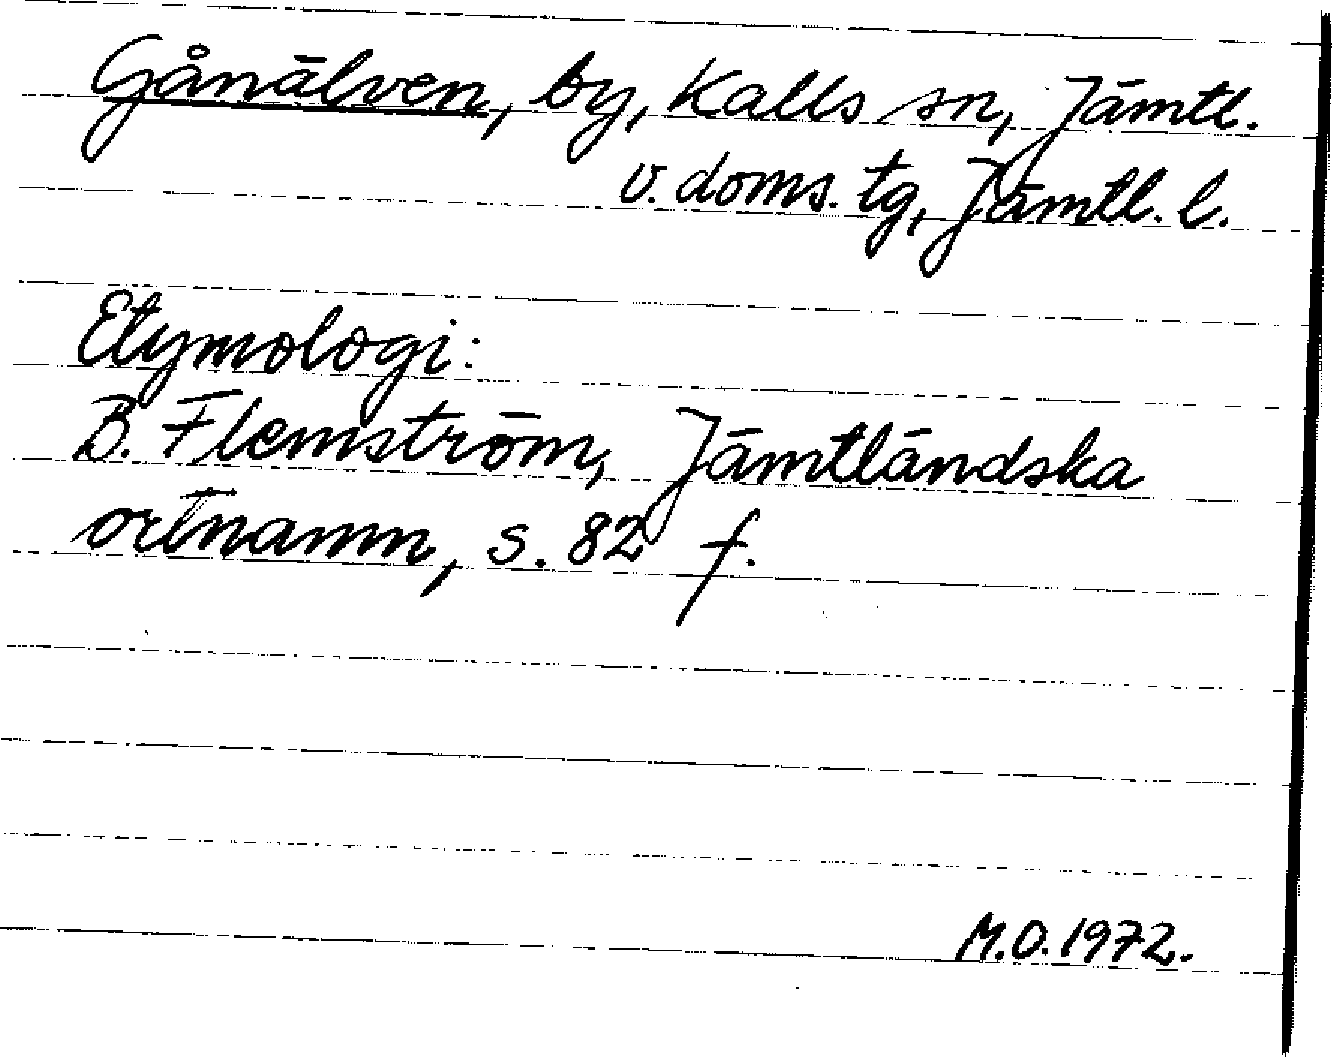 Gånälven, by, Kalls sn, Jämtl.
v. doms. tg, Jämtl. l.
Etymologi:
B. Flemström, Jämtländska
ortnamn, s. 82 f.
M.O. 1972.